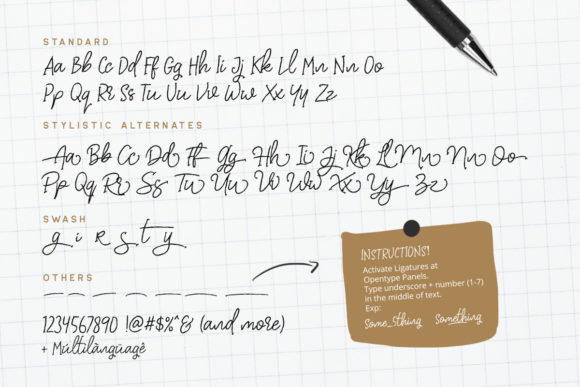 STANDARD
Aa Bb Cc Dd Ff Gg Hh Ii Jj Kk Ll Mm Nn Oo
Pp Qq Rr Ss Tt Uu Vv Ww Xx Yy Zz
STYLISTIC ALTERNATES
Aa Bb Cc Dd Ff Gg Hh Ii Jj Kk Ll Mm Nn Oo
Pp Qq Rr Ss Tt Uu Vv Ww Xx Yy Zz
SWASH
g i r s t y
OTHERS
1234567890 !@#$%^& (and more)
+ Múltilàngüagê
INSTRUCTIONS!
Activate Ligatures at
Opentype Panels.
Type underscore + number (1-7)
in the middle of text.
Exp:
Some_5thing Something